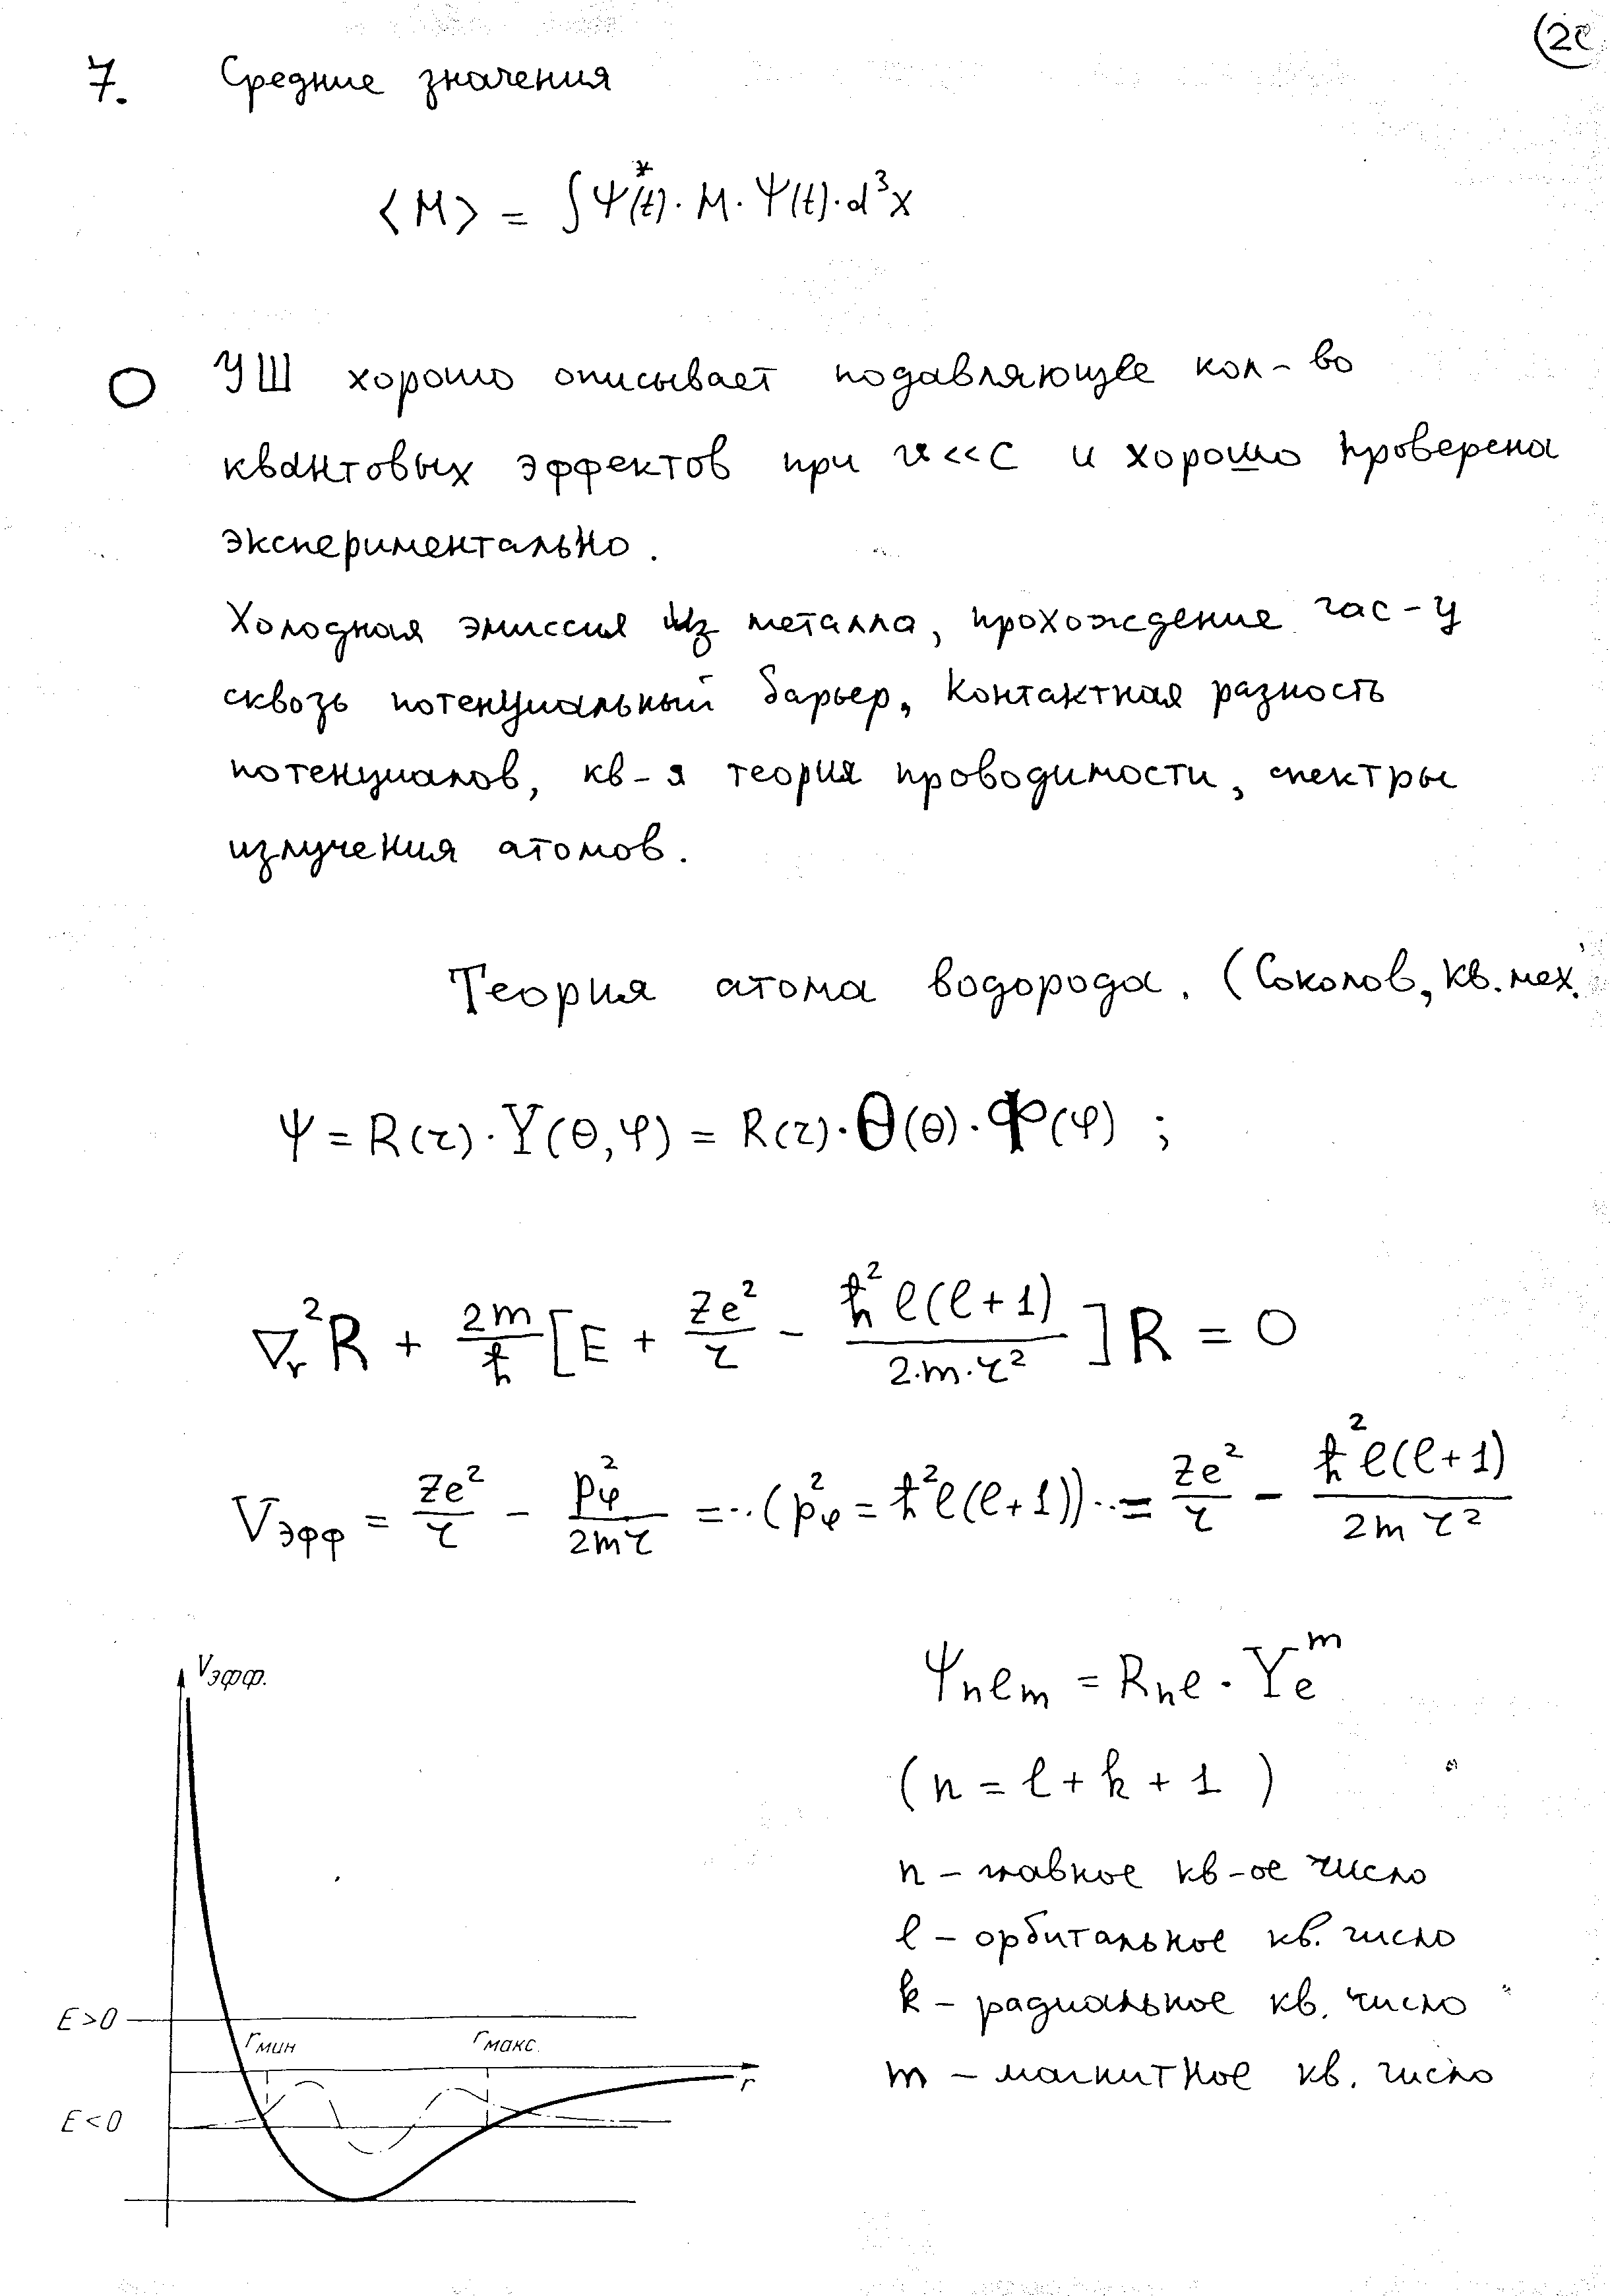 (20
7. Средние значения
<M> = ∫Ψ*(t)·M·Ψ(t)·d³x
О УШ хорошо описывает подавляющее кол-во
квантовых эффектов при v<<c и хорошо проверена
экспериментально.
Холодная эмиссия из металла, прохождение час-ц
сквозь потенциальный барьер, контактная разность
потенциалов, кв-я теория проводимости, спектры
излучения атомов.
Теория атома водорода. (Соколов, кв. мех.
Ψ = R(r)·Y(θ,φ) = R(r)·Θ(θ)·Φ(φ) ;
∇r²R + 2m/ħ [E + Ze²/r − ħ²ℓ(ℓ+1)/2·m·r²] R = 0
Vэфф = Ze²/r − pφ²/2mr = ··(pφ² = ħ²ℓ(ℓ+1))·· = Ze²/r − ħ²ℓ(ℓ+1)/2mr²
Vэфф.
E>0
rмин
rмакс.
r
E<0
Ψnℓm = Rnℓ · Yℓ^m
(n = ℓ + k + 1)
n – главное кв-ое число
ℓ – орбитальное кв. число
k – радиальное кв. число
m – магнитное кв. число